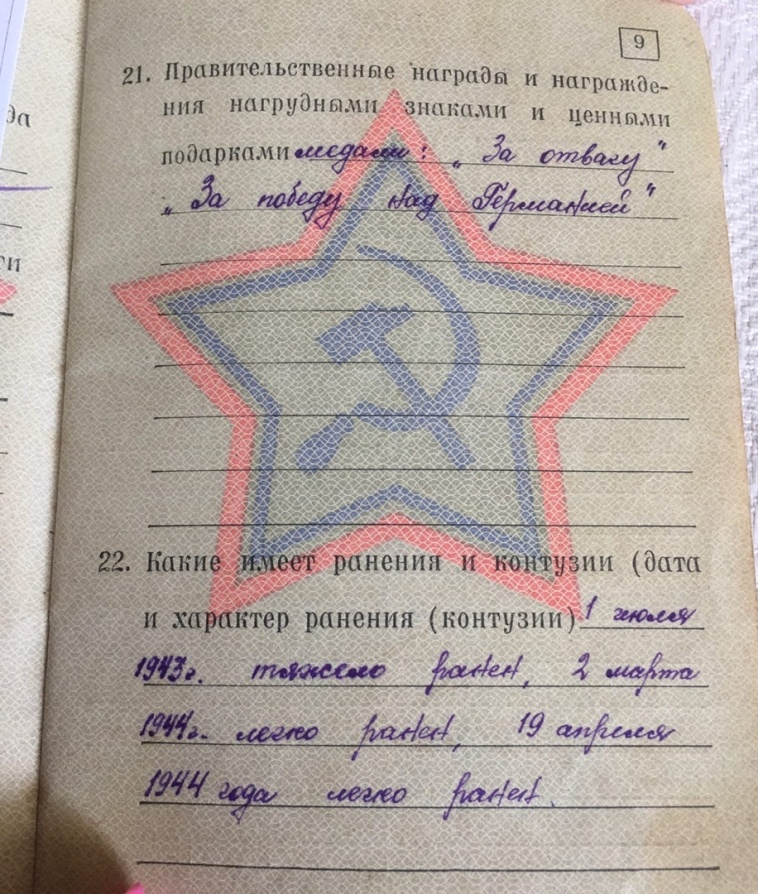 9
21. Правительственные награды и награжде-
ния нагрудными знаками и ценными
подарками медали: „За отвагу"
„За победу над Германией"
22. Какие имеет ранения и контузии (дата
и характер ранения (контузии) 1 июля
1943г. тяжело ранен, 2 марта
1944г. легко ранен, 19 апреля
1944 года легко ранен.
да
ти